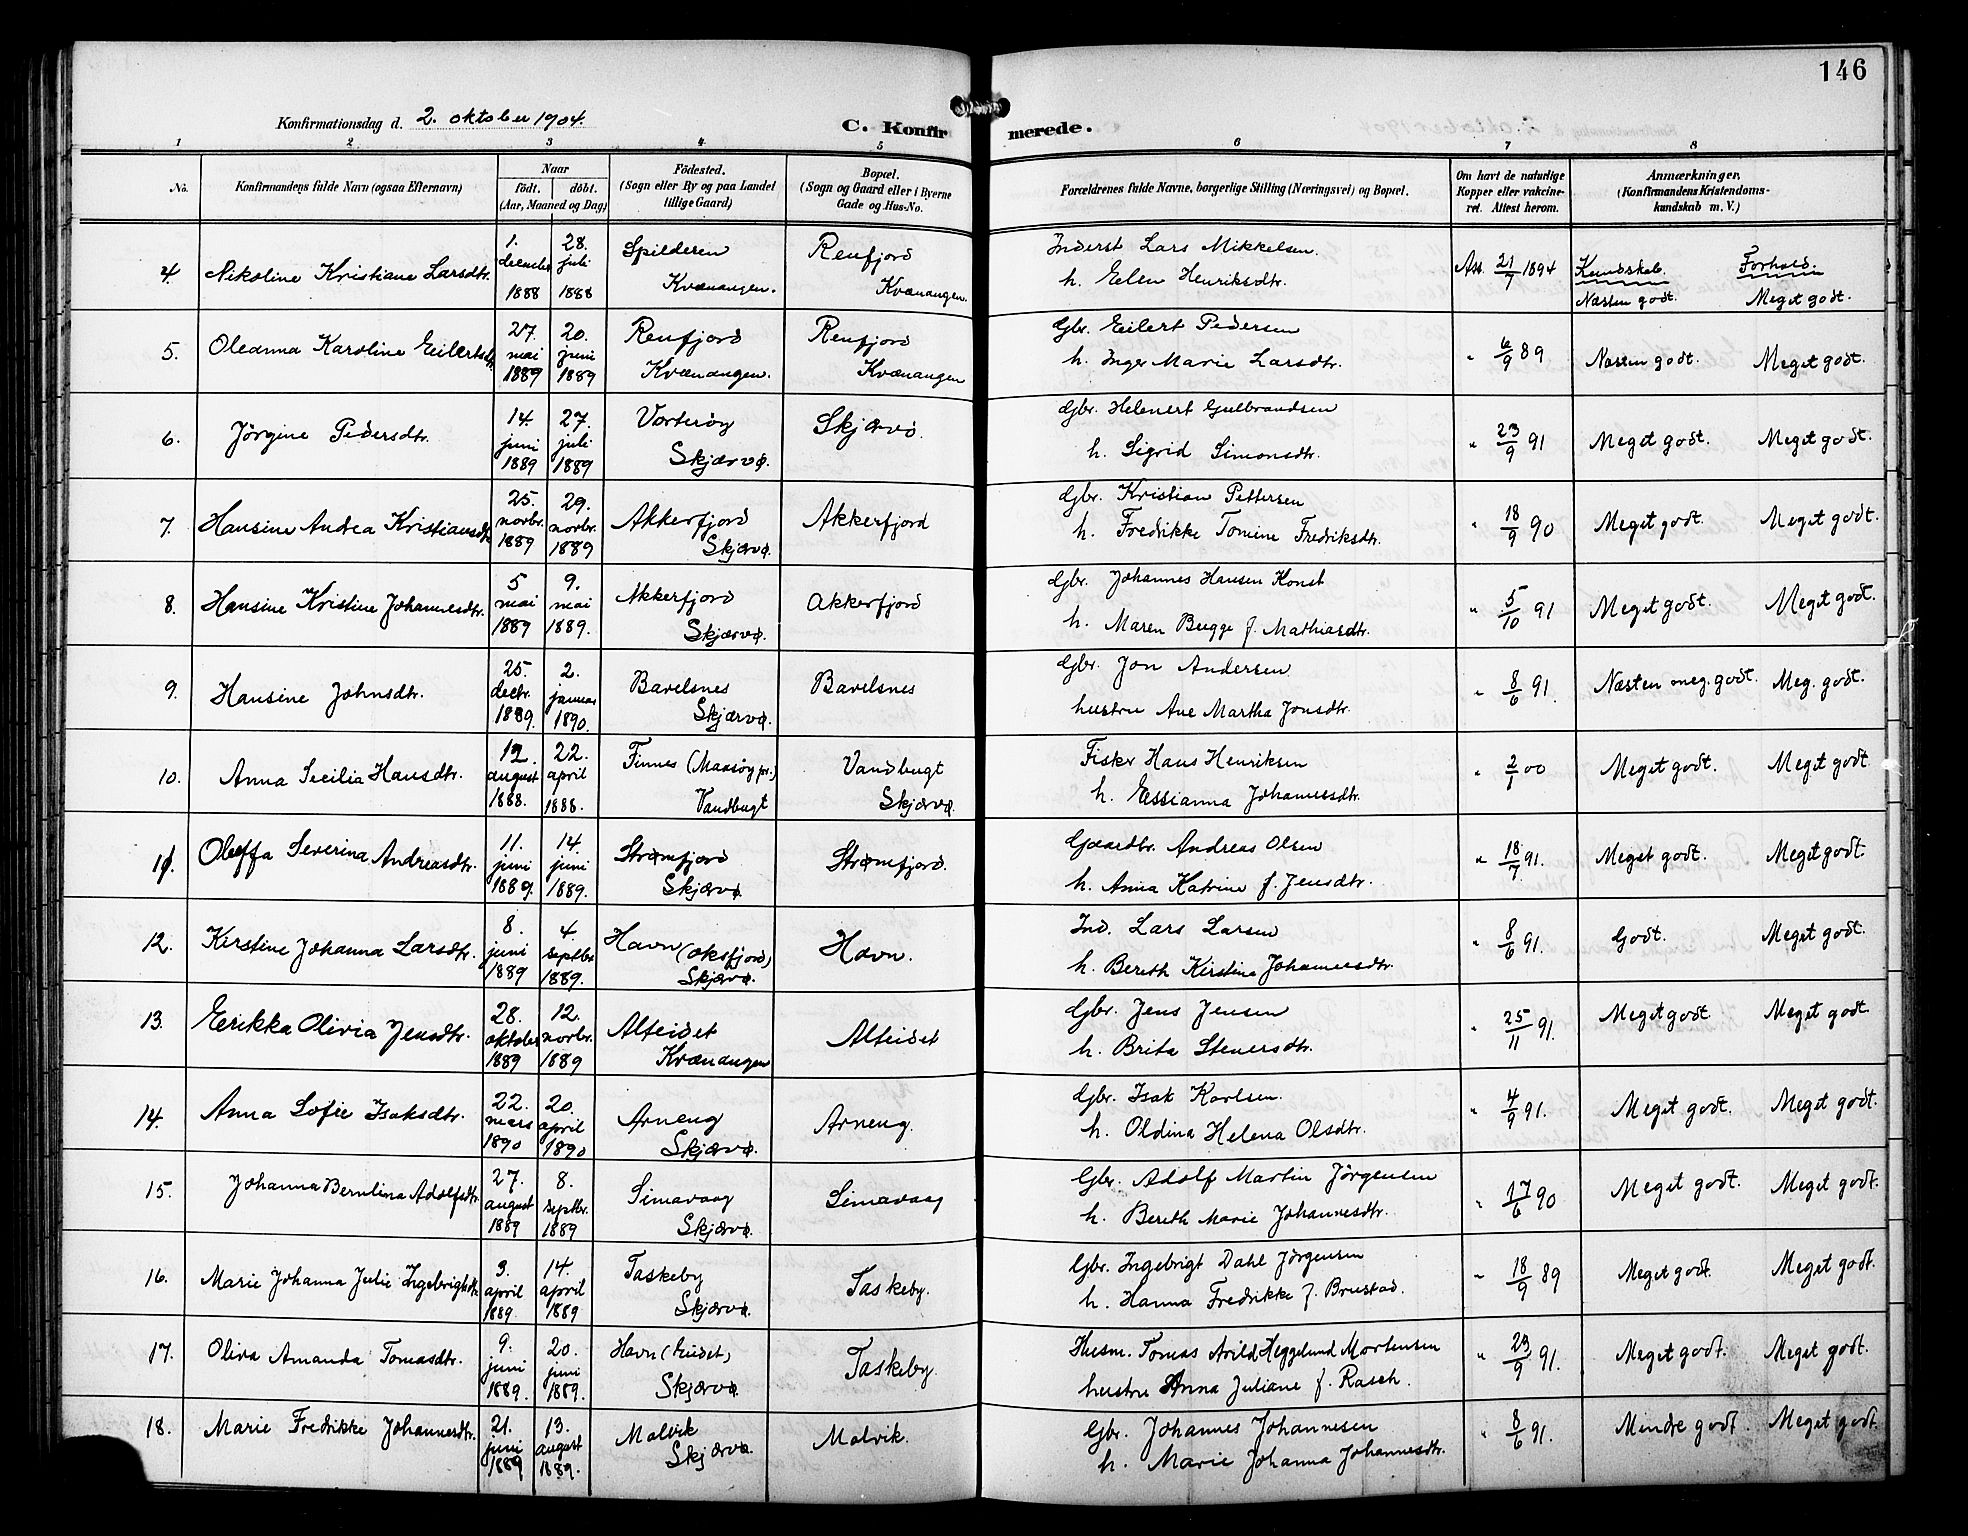 146
Konfirmationsdag d. 2. oktober 1904.
C. Konfirmerede.
1 2 3 4 5 6 7 8
No.
Konfirmandens fulde Navn (ogsaa Efternavn)
Naar
født. döbt.
(Aar, Maaned og Dag)
Födested.
(Sogn eller By og paa Landet
tillige Gaard)
Bopæl.
(Sogn og Gaard eller i Byerne
Gade og Hus-No.
Forældrenes fulde Navne, borgerlige Stilling (Næringsvei) og Bopæl.
Om havt de naturlige
Kopper eller vakcine-
ret. Attest herom.
Anmærkninger,
(Konfirmandens Kristendoms-
kundskab m. V.)
4. Nikoline Kristiane Larsdtr. 1. december 1888 28. juli 1888 Spilderen Kvænangen. Renfjord Kvænangen. Inderst Lars Mikkelsen.
h. Elen Henriksdtr. Att. 21/7 1894 Kundskab. Forhold.
Næsten godt. Meget godt.
5. Oleanna Karoline Eilertsdtr. 27. mai 1889 20. juni 1889 Renfjord Kvænangen. Renfjord Kvænangen Gbr. Eilert Pedersen
h. Inger Marie Larsdtr. " 6/9 89 Næsten godt. Meget godt.
6. Jörgine Pedersdtr. 14. juni 1889 27. juli 1889 Vorterøy Skjærvø. Skjærvø. Gbr. Helenert Gulbrandsen
h. Sigrid Simonsdtr. " 23/9 91 Meget godt. Meget godt.
7. Hansine Andrea Kristiansdtr. 25. novbr. 1889 29. novbr. 1889 Akkerfjord Skjærvø. Akkerfjord Gbr. Kristian Pettersen
h. Fredrikke Tomine Fredriksdtr. " 18/9 90 Meget godt. Meget godt.
8. Hansine Kristine Johannesdtr. 5 mai 1889 9. mai 1889. Akkerfjord Skjærvø. Akkerfjord Gbr. Johannes Hansen Konst
h. Maren Bugge f. Mathiasdtr. " 5/10 91 Meget godt. Meget godt.
9. Hansine Johnsdtr. 25. decbr. 1889. 2. januar 1890. Bavelsnes Skjærvø. Bavelsnes Gbr. Jon Andersen
hustru Ane Martha Jonsdtr. " 8/6 91. Næsten meg. godt. Meg. godt.
10. Anna Secilia Hansdtr. 12. august 1888. 22. april 1888. Finnes (Maasøy pr.) Vandbugt Vandbugt Skjærvø. Fisker Hans Henriksen
h. Essianna Johannesdtr. " 2/1 00 Meget godt. Meget godt.
11. Oleffa Severina Andreasdtr. 11. juni 1889. 14. juni 1889. Strømfjord Skjærvø. Strømfjord. Gaardbr. Andreas Olsen
h. Anna Katrine f. Jensdtr. " 18/7 91. Meget godt. Meget godt.
12. Kirstine Johanna Larsdtr. 8. juni 1889 4. septbr. 1889. Havn (oksfjord) Skjærvø. Havn. Ind. Lars Larsen
h. Bereth Kirstine Johannesdtr. " 8/6 91. Godt. Meget godt.
13. Erikka Olivia Jensdtr. 28. oktober 1889 12. novbr. 1889 Alteidet Kvænangen Alteidet Gbr. Jens Jensen
h. Brita Stenersdtr. " 25/11 91. Meget godt. Meget godt.
14. Anna Sofie Isaksdtr. 22. mars 1890 20. april 1890 Arneng Skjærvø. Arneng. Gbr. Isak Karlsen.
h. Oldina Helena Olsdtr. " 4/9 91. Meget godt. Meget godt.
15. Johanna Bernlina Adolfsdtr. 27. august 1889 8. septbr. 1889 Simavaag Skjærvø. Simavaag Gbr. Adolf Martin Jörgensen
h. Bereth Marie Johannesdtr. " 17/6 90 Meget godt. Meget godt.
16. Marie Johanna Julie Ingebrigtsdtr. 3. april 1889. 14. april 1889 Taskeby Skjærvø. Taskeby. Gbr. Ingebrigt Dahl Jörgensen
h. Hanna Fredrikke f. Brustad. " 18/9 89 Meget godt. Meget godt.
17. Oliva Amanda Tomasdtr. 9. juni 1889. 20. juni 1889. Havn (Eidet) Skjærvø. Taskeby. Husm. Tomas Arild Heggelund Mortensen
hustru Anna Juliane f. Rasch. " 23/9 91. Meget godt. Meget godt.
18. Marie Fredrikke Johannesdtr. 21. juni 1889 13. august 1889. Malvik Skjærvø. Malvik. Gbr. Johannes Johannesen
h. Marie Johanna Johannesdtr. " 8/6 91. Mindre godt. Meget godt.